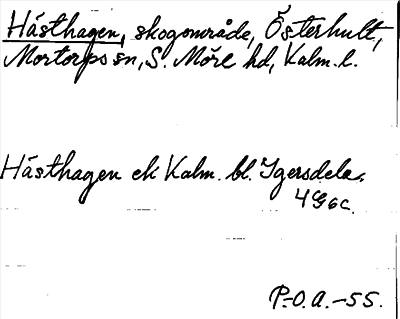 Hästhagen, skogområde, Österhult,
Mortorps sn, S. Möre hd, Kalm. l.
Hästhagen ek Kalm. bl. Ygersdela.
4G6c.
P.-O.A.-55.